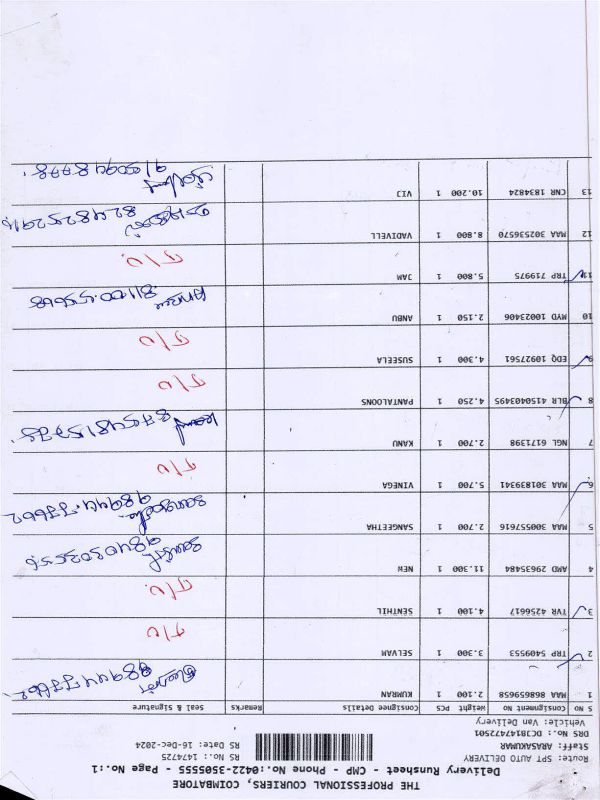 THE PROFESSIONAL COURIERS, COIMBATORE
Delivery Runsheet - CMP - Phone No.:0422-3505555 - Page No.:1
Route: SPT AUTO DELIVERY
RS No.: 1474725
Staff: ARASAKUMAR
RS Date: 16-Dec-2024
DRS No.: DCJB1474472501
Vehicle: Van Delivery
S NO Consignment No Weight PCS Consignee Details Remarks Seal & Signature
1 MAA 868659658 2.100 1 KUMRAN
2 TRP 5409553 3.300 1 SELVAM T/U
3 TVR 4256617 4.100 1 SENTHIL T/U.
4 AMD 29635484 11.300 1 NEW
5 MAA 300557616 2.700 1 SANGEETHA
6 MAA 301839341 5.700 1 VINEGA T/U
7 NGL 6171398 2.700 1 KANU 8754815778
8 BLR 4150403495 4.250 1 PANTALOONS T/U
9 EDQ 10927561 4.300 1 SUSEELA T/U
10 MYD 10023406 2.150 1 ANBU
11 TRP 719975 5.800 1 JAM T/U
12 MAA 302536570 8.800 1 VADIVELL
13 CNR 1834824 10.200 1 VIJ